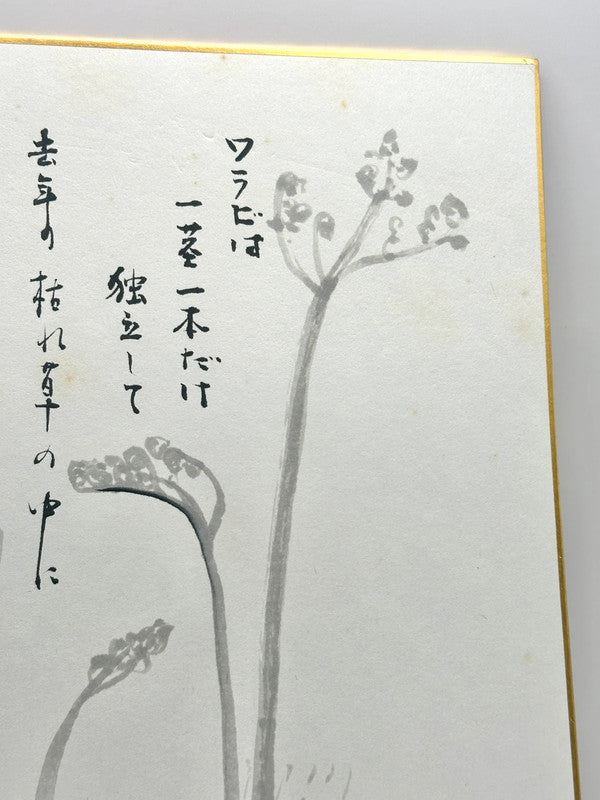 ワラビは
一茎一本だけ
独立して
去年の枯れ草の中に